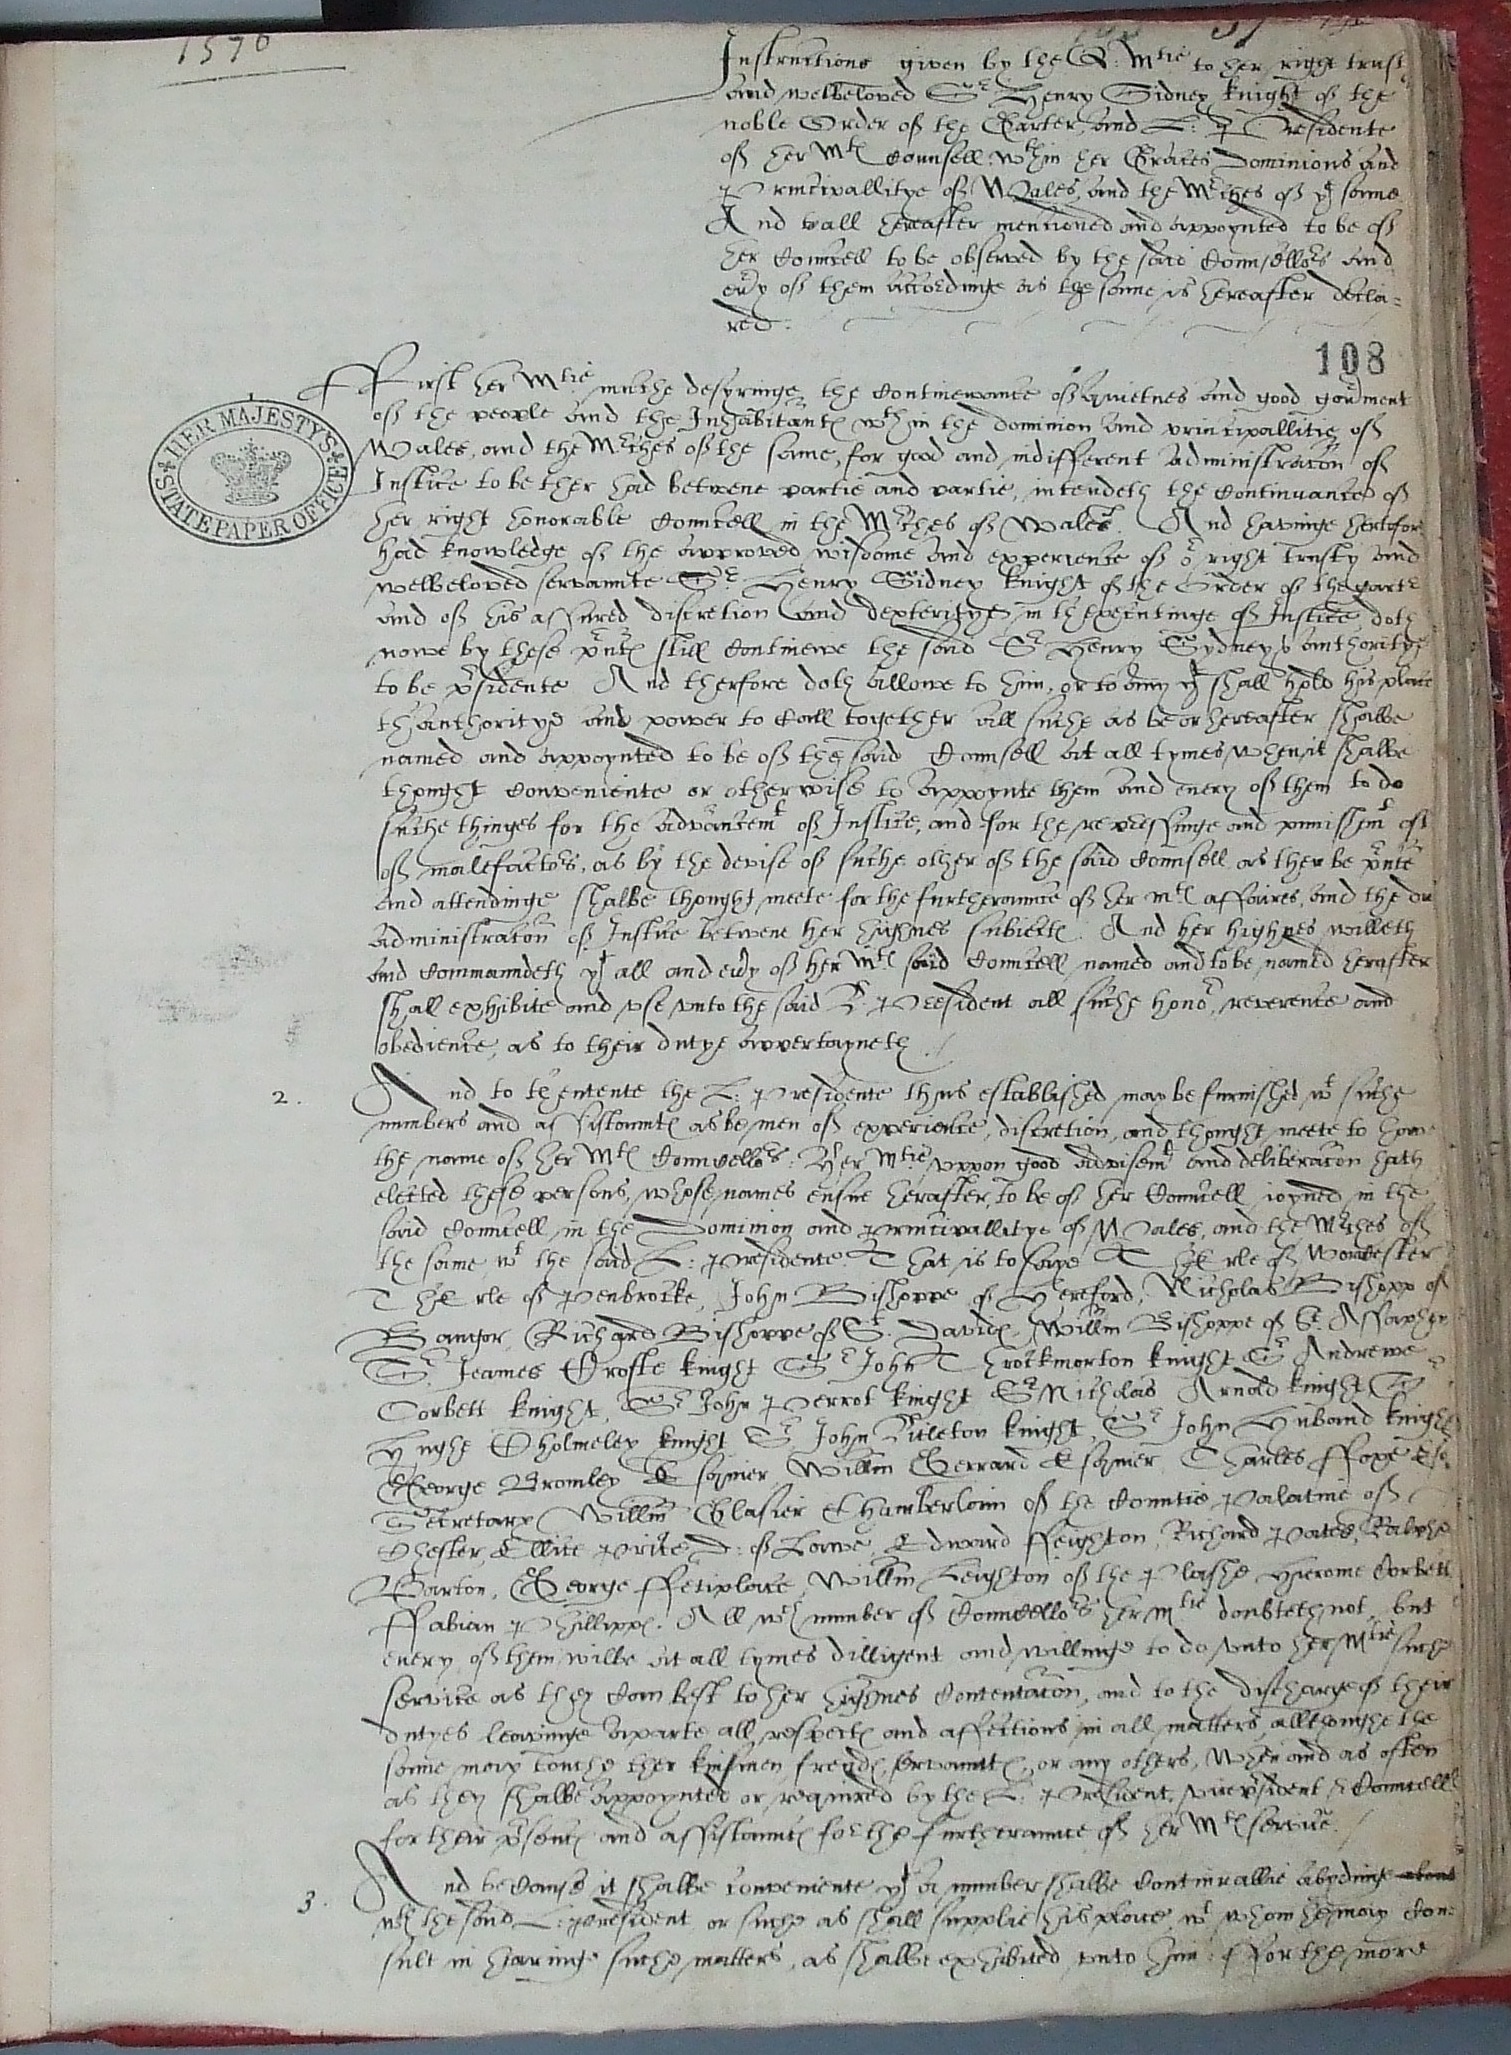 1570
Instructions given by the Q: Mtie to her right trusty
and welbeloved Sr Henry Sidney knight of the
noble Order of the Garter, and L: Presidente
of her Mts Counsell wthin her Graces Dominions and
Principallitye of Wales, and the Mrches of ye same
And to all hereafter mentioned and appoynted to be of
her Councell to be observed by the said Counsellors and
eu'y of them accordinge as the same is hereafter decla=
red.
108
HER MAJESTY'S STATE PAPER OFFICE
First her Mtie muche desyringe the Continewance of quietnes and good gou'ment
of the people and the Inhabitantes wthin the dominion and principallitie of
Wales, and the Mrches of the same, for good and indifferent administracon of
Justice to be ther had betwene partie and partie, intendeth the Continuance of
her right honorable Councell in the Mrches of Wales. And havinge hertofore
had knowledge of the approved wisdome and experience of or right trusty and
welbeloved servaunte Sr Henry Sidney knight of the Order of the garter
and of his assured discretion and dexteritye in thexecutinge of Justice, doth
nowe by these pntes still Continewe the said Sr Henry Sydneys authoritye
to be psidente And therfore doth allowe to him, or to any yt shall hold his place
thauthoritye and power to Call together all suche as be or hereafter shalbe
named and appoynted to be of the said Counsell at all tymes when it shalbe
thought Conveniente or otherwise to appoynte them and every of them to do
suche thinges for the advancemt of Justice, and for the repressinge and punishmt of
of malefactors, as by the devise of suche other of the said Counsell as ther be pnte
and attendinge shalbe thought meete for the furtheraunce of her mts affaires, and the due
administracon of Justice betwene her highnes subiectes. And her highnes willeth
and Commaundeth yt all and eu'y of her Mts said Councell named and to be named herafter
shall exhibite and vse vnto the said L: President all suche honor, reverence and
obedience, as to their dutye appertayneth.
2. And to thentente the L: Presidente thus established may be furnished wt suche
numbers and assistauntes as be men of experience, discretion, and thought meete to have
the name of her Mts Councellors: Her Mtie vppon good advisemt and deliberacon hath
elected these persons, whose names ensue herafter, to be of her Councell ioyned in the
said Councell in the Dominion and Principallitye of Wales, and the Mrches of
the same wt the said L: Presidente. That is to saye Therle of Worcester
Therle of Penbrocke, John Bishoppe of Hereford, Nicholas Bishopp of
Bangor, Richard Bishoppe of St. Davides, Willm Bishoppe of St. Assaphen
Sr Jeames Crofte knight Sr John Throckmorton knight Sr Andrewe
Corbett knight, Sr John Perrot knight Sr Nicholas Arnold knight Sr
Hughe Cholmeley knight Sr John Litleton knight, Sr John Huband knight
George Bromley Esquier Willm Gerrard Esquier Charles ffoxe Esqr
Secretary Willm Glasier Chamberlain of the Countie Palatine of
Chester, Ellice Price D: of Lawe, Edward Leighton, Richard Pates, Ralphe
Barton, George ffetiplace, Willm Leighton of the Plashe Hierome Corbett
ffabian Phillippes. All wch number of Councellors her mtie doubteth not, but
every of them wilbe at all tymes dilligent and willinge to do vnto her Mtie suche
service as they Can best to her highnes Contentacon, and to the discharge of their
dutyes leavinge aparte all respectes and affections in all matters allthoughe the
same may touche ther kinsmen, freyndes, servauntes, or any others, When and as often
as they shalbe appoynted or required by the L: President, vicepsident & Councell
for their psentes and assistauntes for the furtheraunce of her Mts service.
3. And because it shalbe conveniente yt a number shalbe Continuallie abydinge
wth the said L: President or suche as shall supplie his place wt whom he may Con=
sult in hearinge suche matters, as shalbe exhibited vnto him: ffor the more